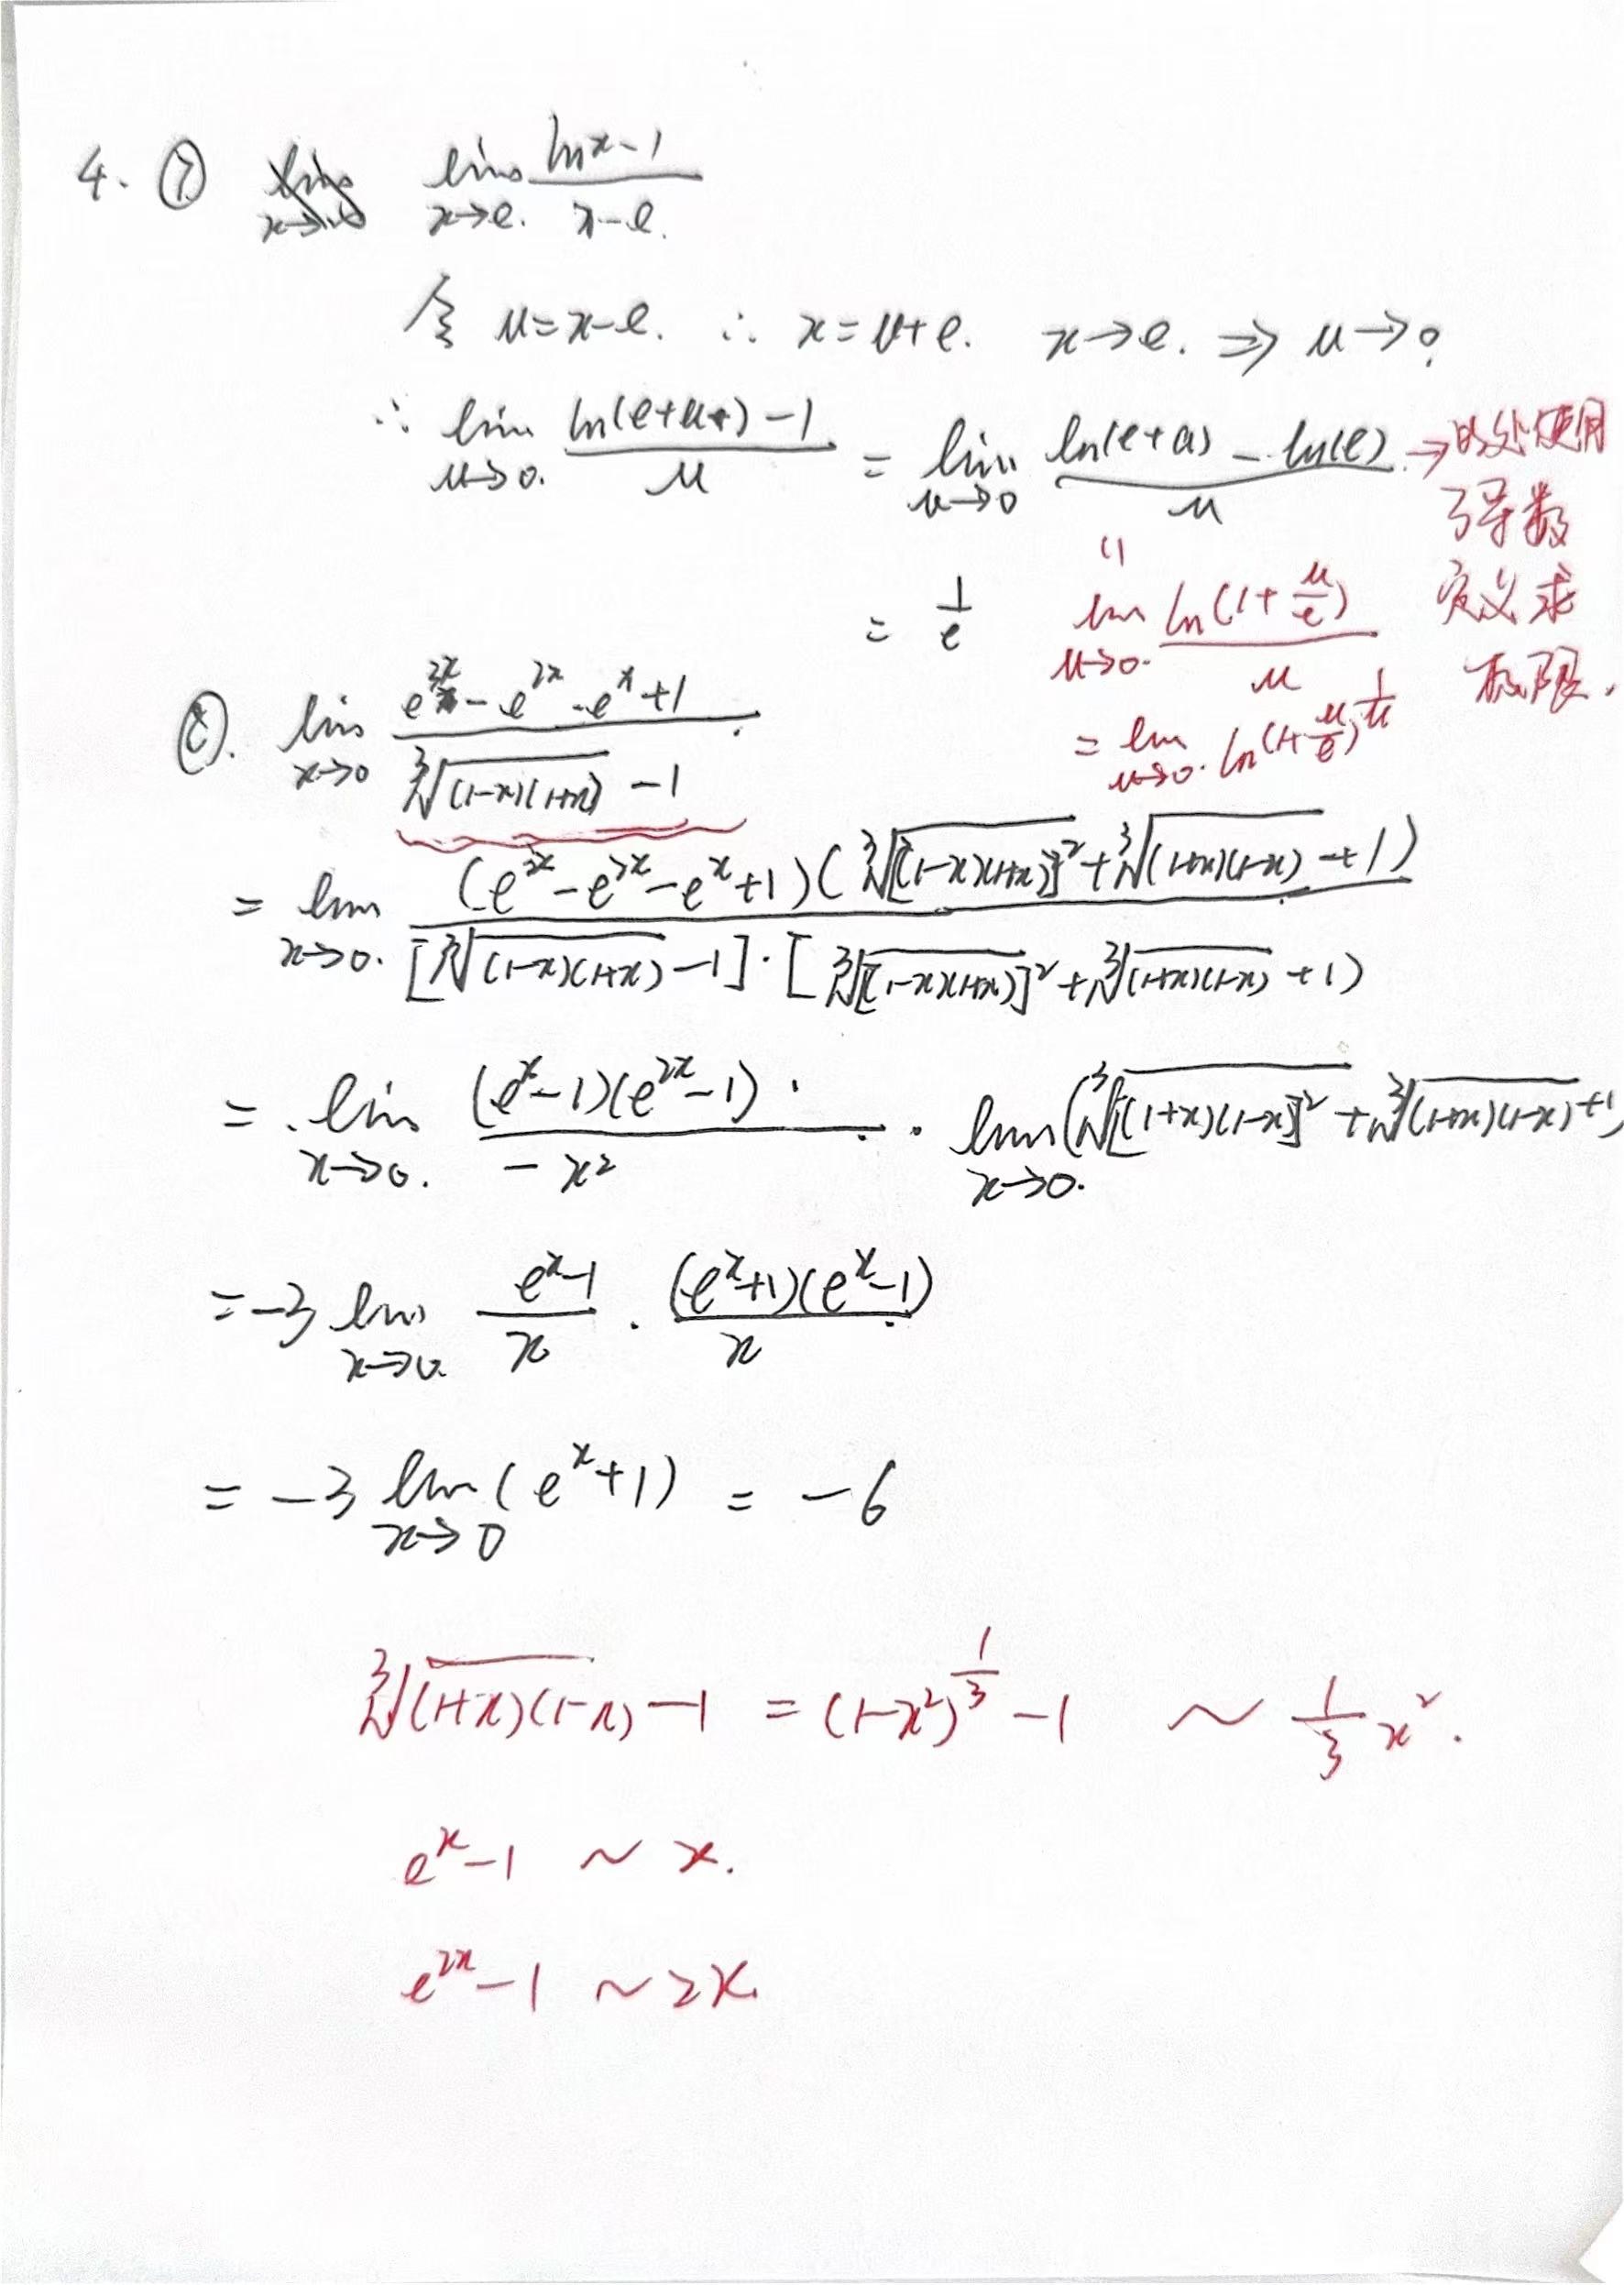 4. ⑦ lim x→e (ln x - 1)/(x - e)
令 u = x - e. ∴ x = u + e. x→e. ⇒ u→0
∴ lim u→0 (ln(e+u) - 1)/u = lim u→0 (ln(e+u) - ln(e))/u → 此处使用
了导数
定义求
极限.
= 1/e
lim u→0 ln(1+u/e)/u
= lim u→0 ln(1+u/e)^(1/u)
⑧. lim x→0 (e^(3x) - e^(2x) - e^x + 1)/(∛((1-x)(1+x)) - 1)
= lim x→0 (e^(3x) - e^(2x) - e^x + 1)(∛([(1-x)(1+x)]²) + ∛((1+x)(1-x)) + 1)/([∛((1-x)(1+x)) - 1]·[∛([(1-x)(1+x)]²) + ∛((1+x)(1-x)) + 1)
= lim x→0 (e^x - 1)(e^(2x) - 1)/(-x²) · lim x→0 (∛([(1+x)(1-x)]²) + ∛((1+x)(1-x)) + 1)
= -3 lim x→0 (e^x - 1)/x · (e^x + 1)(e^x - 1)/x
= -3 lim x→0 (e^x + 1) = -6
∛((1+x)(1-x)) - 1 = (1-x²)^(1/3) - 1 ~ 1/3 x².
e^x - 1 ~ x.
e^(2x) - 1 ~ 2x.